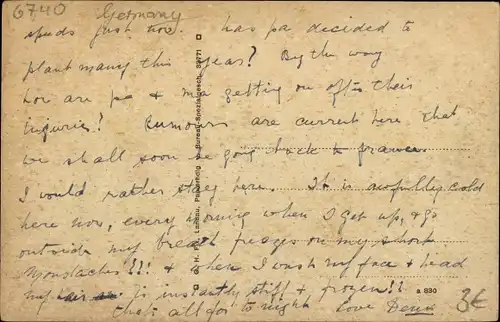 6740 Germany
spuds just now. has pa decided to
plant many this year? By the way
how are pa & ma getting on after their
injuries? Rumours are current here that
we shall soon be going back to France.
I would rather stay here. It is awfully cold
here now, every morning when I get up, & go
outside my breath freezes on my short
moustaches!!! & when I wash my face & head
my hair is instantly stiff & frozen!!
That's all for to night Love
H. Landau, Papierholg. u. Bureau-Spezialgesch. 38771
a 830
3€